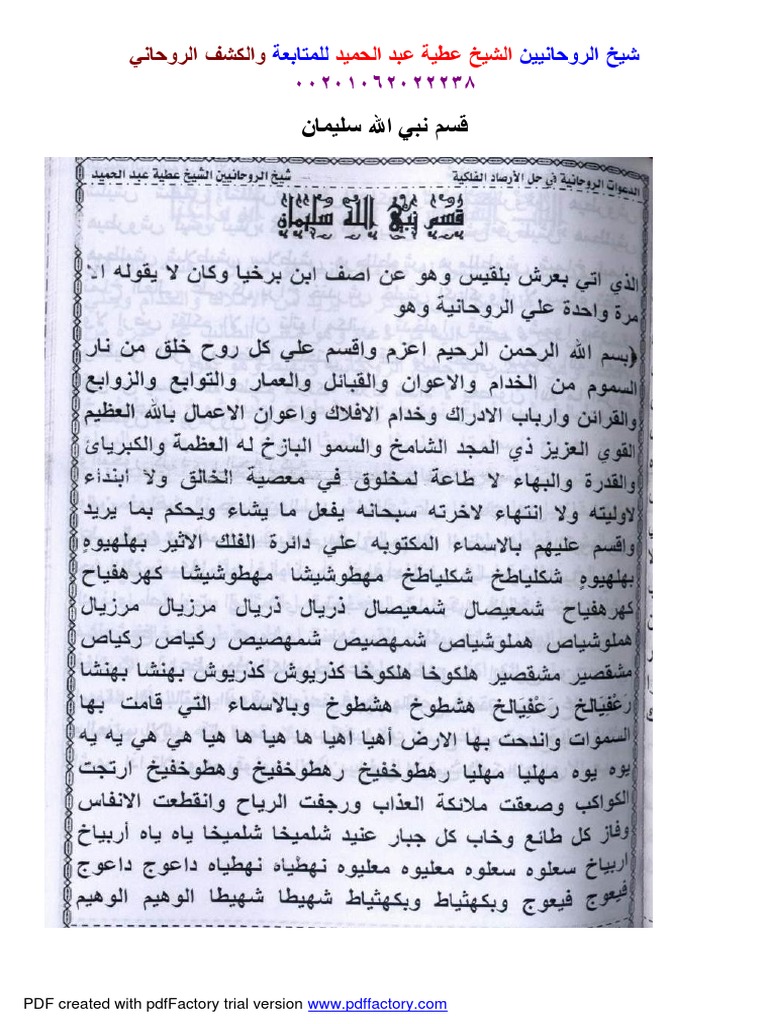 شيخ الروحانيين الشيخ عطية عبد الحميد للمتابعة والكشف الروحاني
٠٠٢٠١٠٦٢٠٢٢٢٣٨
قسم نبي الله سليمان
الدعوات الروحانية في حل الأرصاد الفلكية شيخ الروحانيين الشيخ عطية عبد الحميد
قسم نبي الله سليمان
الذي اتي بعرش بلقيس وهو عن اصف ابن برخيا وكان لا يقوله الا
مرة واحدة علي الروحانية وهو
(بسم الله الرحمن الرحيم اعزم واقسم علي كل روح خلق من نار
السموم من الخدام والاعوان والقبائل والعمار والتوابع والزوابع
والقرائن وارباب الادراك وخدام الافلاك واعوان الاعمال بالله العظيم
القوي العزيز ذي المجد الشامخ والسمو البازخ له العظمة والكبريائ
والقدرة والبهاء لا طاعة لمخلوق في معصية الخالق ولا أبنداء
لاوليته ولا انتهاء لاخرته سبحانه يفعل ما يشاء ويحكم بما يريد
واقسم عليهم بالاسماء المكتوبه علي دائرة الفلك الاثير بهلهيوه
بهلهيوه شكلياطخ شكلياطخ مهطوشيشا مهطوشيشا كهرهفياح
كهرهفياح شمعيصال شمعيصال ذريال ذريال مرزيال مرزيال
هملوشياص هملوشياص شمهصيص شمهصيص ركياص ركياص
مشقصير مشقصير هلكوخا هلكوخا كذريوش كذريوش بهنشا بهنشا
رَعْفِيَالخ رَعْفِيَالخ هشطوخ هشطوخ وبالاسماء التي قامت بها
السموات واندحت بها الارض أهيا اهيا ها هيا ها هيا هي هي يه يه
يوه يوه مهليا مهليا رهطوخفيخ رهطوخفيخ وهطوخفيخ ارتجت
الكواكب وصعقت ملائكة العذاب ورجفت الرياح وانقطعت الانفاس
وفاز كل طائع وخاب كل جبار عنيد شلميخا شلميخا ياه ياه أربياخ
اربياخ سعلوه سعلوه معليوه معليوه نهطياه نهطياه داعوج داعوج
فيعوج فيعوج وبكهثياط وبكهثياط شهيطا شهيطا الوهيم الوهيم
PDF created with pdfFactory trial version www.pdffactory.com